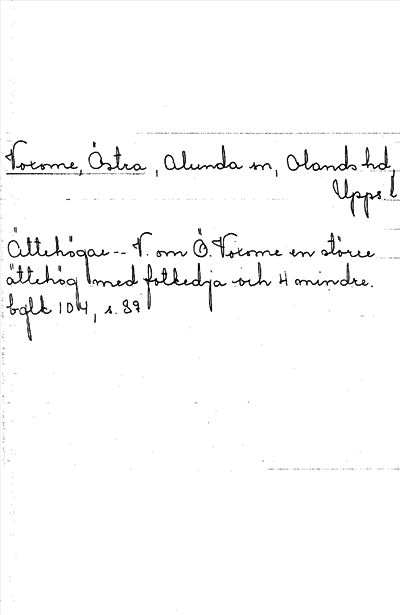 Voxome, Östra, Alunda sn, Olands hd,
Upps l
Ättehögar -- V. om Ö. Voxome en större
ättehög med fotkedja och 4 mindre.
bglk 104, s. 89